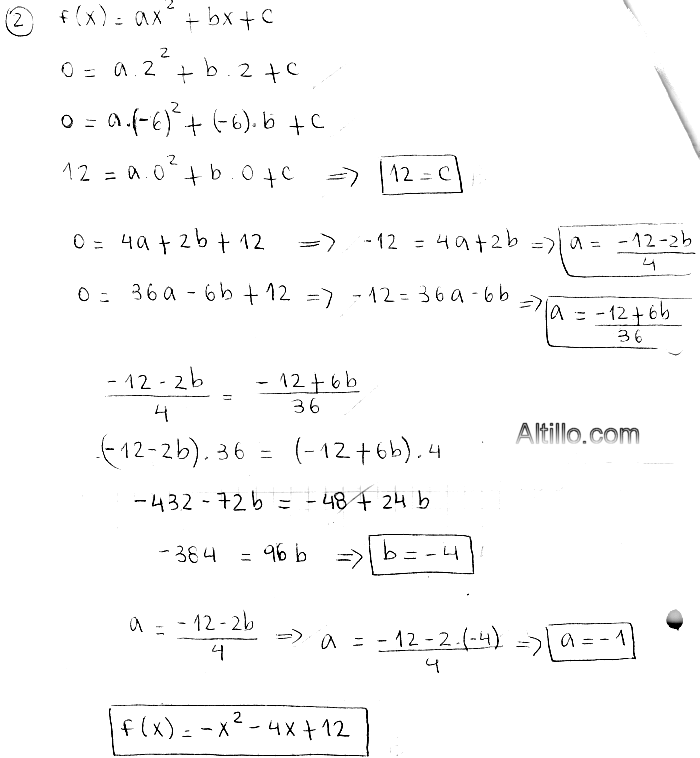 ② f(x) = ax² + bx + c
0 = a.2² + b.2 + c
0 = a.(-6)² + (-6).b + c
12 = a.0² + b.0 + c ⇒ 12 = c
0 = 4a + 2b + 12 ⇒ -12 = 4a + 2b ⇒ a = (-12-2b)/4
0 = 36a - 6b + 12 ⇒ -12 = 36a - 6b ⇒ a = (-12+6b)/36
(-12-2b)/4 = (-12+6b)/36
Altillo.com
(-12-2b).36 = (-12+6b).4
-432-72b = -48+24b
-384 = 96b ⇒ b = -4
a = (-12-2b)/4 ⇒ a = (-12-2.(-4))/4 ⇒ a = -1
f(x) = -x² - 4x + 12